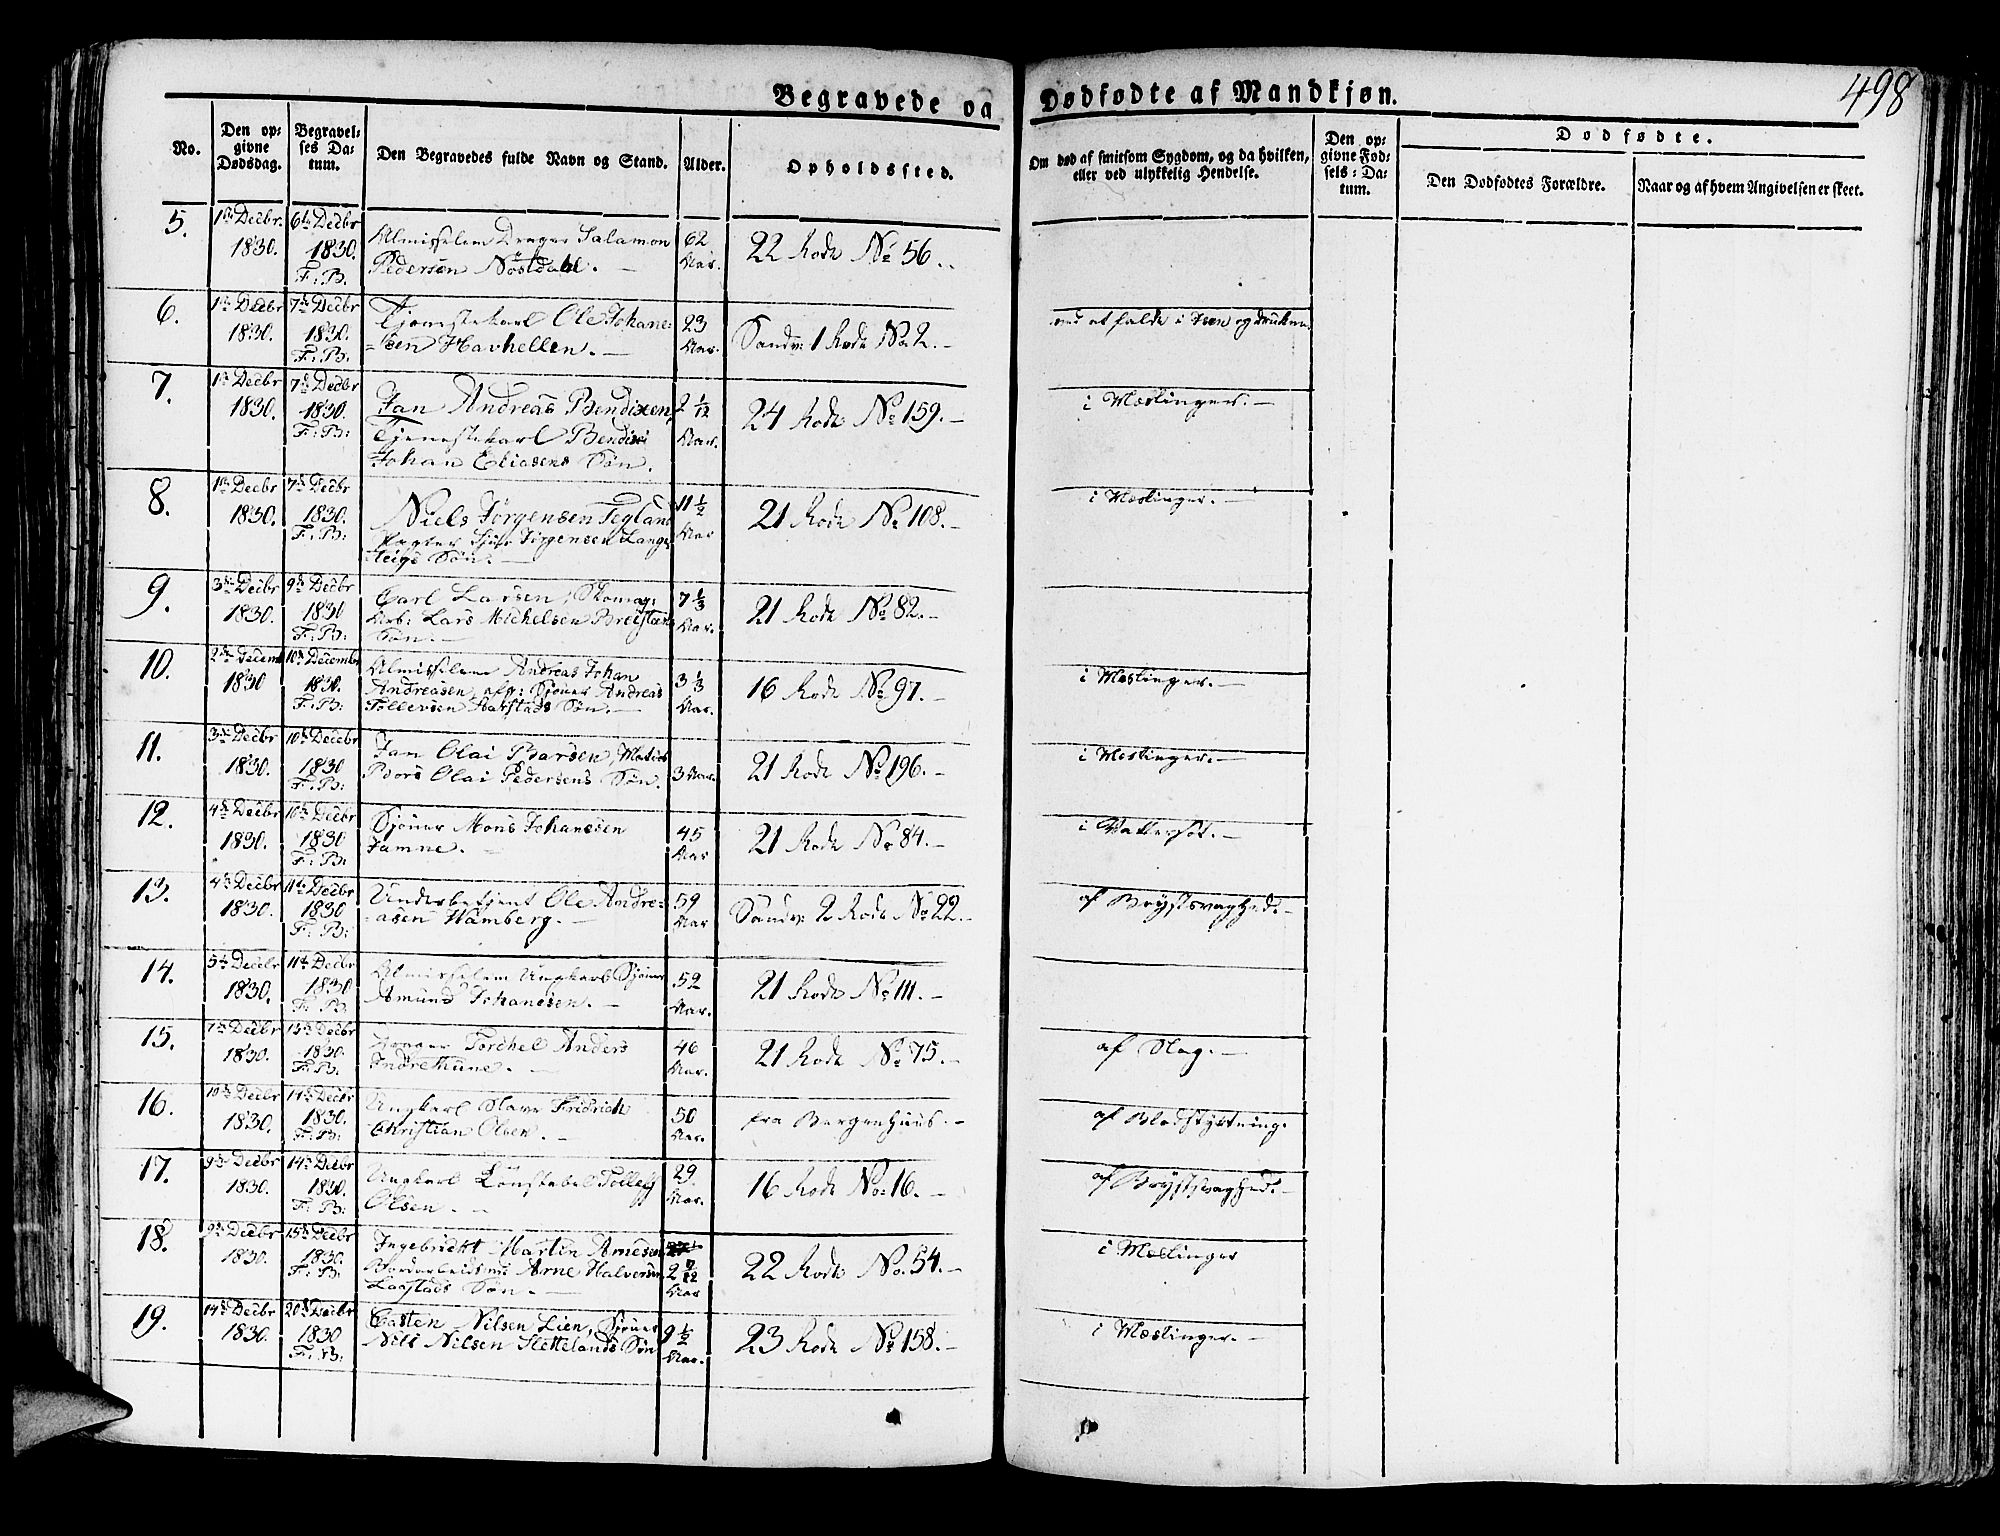 498
Begravede og Dødfødte af Mandkjøn.
No.
Den opgivne Dødsdag.
Begravelses Datum.
Den Begravedes fulde Navn og Stand.
Alder.
Opholdssted.
Om død af smitsom Sygdom, og da hvilken, eller ved ulykkelig Hendelse.
Den opgivne Fødsels-Datum.
Dødfødte.
Den Dødfødtes Forældre.
Naar og af hvem Angivelsen er skeet.
5. 1ste Decbr. 1830. 6te Decbr 1830. F: B. Almisselem Drager Salamon
Pedersen Nøstdahl. — 62 Aar. 22 Rode No 56. —
6. 1ste Decbr 1830. 7de Decbr 1830. F: B: Tjenestekarl Ole Johane-
sen Havhellen. — 23 Aar. Sandv: 1 Rode No. 2. — ved at falde i Søen og drukne
7. 1ste Decbr 1830. 7de Decbr 1830. F: B: Jan Andreas Bendixen,
Tjenestekarl Bendix
Johan Eliasens Søn. 2 1/12 Aar. 24 Rode No 159. — i Mæslinger. —
8. 1ste Decbr 1830. 7de Decbr 1830. F: B: Niels Jørgensen Tegland
Jørgensen Lange-
Søn. — 11 1/2 Aar 21 Rode No 108. — i Mæslinger. —
9. 3die Decbr 1830. 9de Decbr 1830 F: B: Carl Larsen, Skomag:
Arb: Lars Michelsen
Søn. — 7 1/3 Aar. 21 Rode No 82. —
10. 2den Decem 1830 10de Decembr 1830. F: B: Almisselem Andreas Johan
Andreasen, afg: Sjøuer Andreas
Tollevsen Aarstads Søn. — 3 1/3 Aar. 16 Rode No 97. — i Mæslinger. —
11. 3die Decbr 1830. 10de Decbr 1830 F: B: Jan Olai Barsen, Matros
Bars Olai Pedersens Søn. 3 Aar. 21 Rode No 196. — i Mæslinger. —
12. 4de Decbr 1830. 10de Decbr 1830 F: B: Sjøuer Mons Johansen
Jamne. — 45 Aar 21 Rode No 84. — i Vattersot. —
13. 4de Decbr 1830. 11te Decbr 1830 F: B: Underbetjent Ole Andre-
asen Hamberg. — 59 Aar Sandv: 2 Rode No 22. — af Brystsvaghed. —
14. 5te Decbr 1830. 11te Decbr 1830 F: B: Almisselem Ungkarl Sjøuer
Amund Johanesen. — 52 Aar. 21 Rode No 111. —
15. 7de Decbr 1830. 13de Decbr 1830. F: B. Drager Torchel Anders
Indrethune. — 46 Aar. 21 Rode No 75. — af Slag. —
16. 10de Decbr 1830. 14de Decbr 1830. F: B: Ungkarl Slave Fridrich
Christian Olsen. — 50 Aar. fra Bergenhuus. — af Blodstyrtning.
17. 9de Decbr 1830. 14de Decbr 1830. F: B: Ungkarl Konstabel Tolleg
Olsen. — 29. Aar. 16 Rode No: 16. — af Brystsvaghed. —
18. 9de Decbr 1830. 15de Decbr 1830. F: B. Ingebricht Martin Arnesen
Arne Halversen
Søn. — 2 7/12 Aar 22 Rode No. 54. — i Mæslinger
19. 14de Decbr 1830. 20de Decbr 1830 F: B: Casten Nilsen Lien, Sjøuer
Nils Nilsen Slettelands Søn 9 1/2 Aar. 23 Rode No 158. — i Mæslinger. —